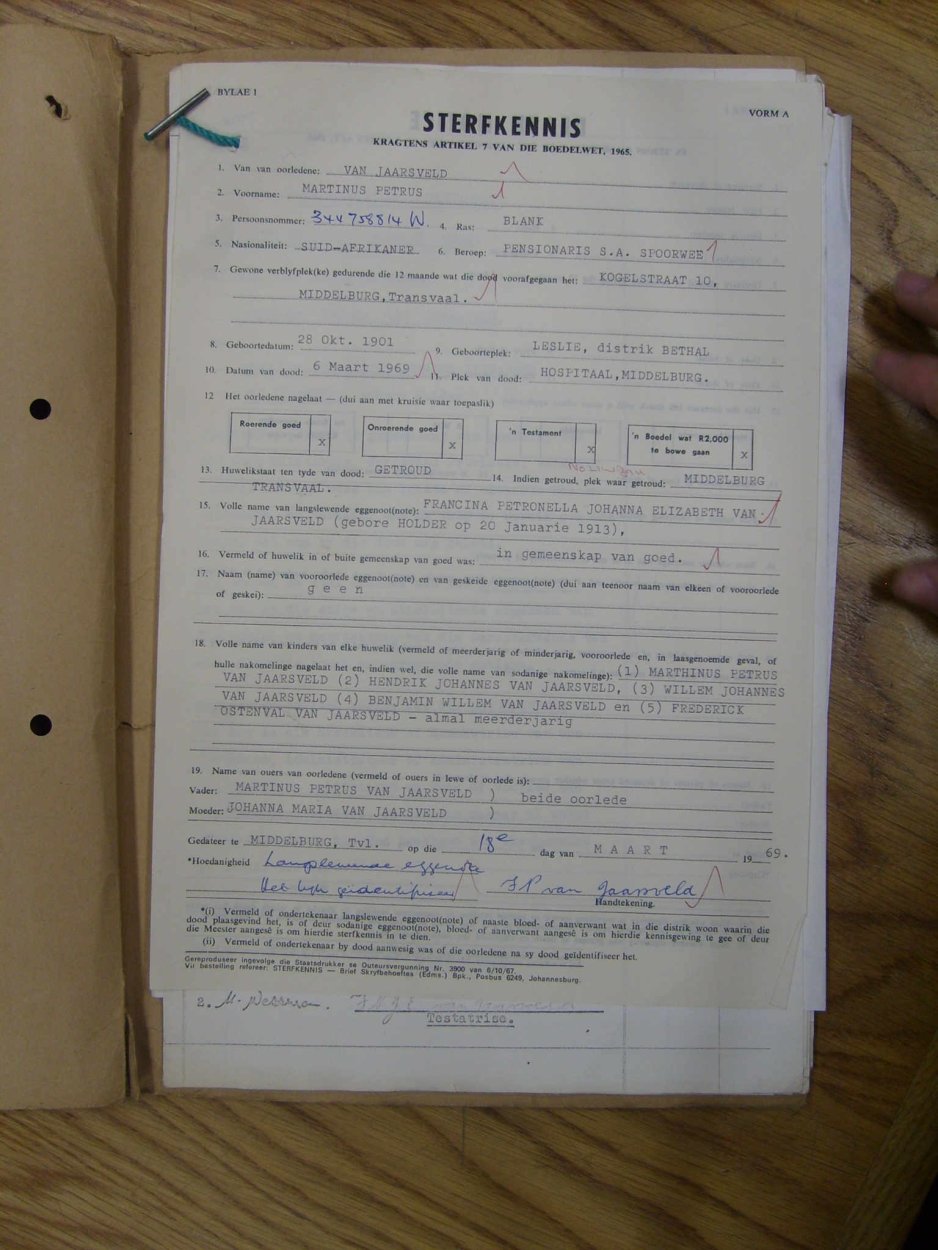 BYLAE 1
VORM A
STERFKENNIS
KRAGTENS ARTIKEL 7 VAN DIE BOEDELWET, 1965.
1. Van van oorledene: VAN JAARSVELD
2. Voorname: MARTINUS PETRUS
3. Persoonsnommer: 344758814 W. 4. Ras: BLANK
5. Nasionaliteit: SUID-AFRIKANER 6. Beroep: PENSIONARIS S.A. SPOORWEE
7. Gewone verblyfplek(ke) gedurende die 12 maande wat die dood voorafgegaan het: KOGELSTRAAT 10,
MIDDELBURG,Transvaal.
8. Geboortedatum: 28 Okt. 1901 9. Geboorteplek: LESLIE, distrik BETHAL
10. Datum van dood: 6 Maart 1969 11. Plek van dood: HOSPITAAL,MIDDELBURG.
12 Het oorledene nagelaat — (dui aan met kruisie waar toepaslik)
Roerende goed x Onroerende goed x 'n Testament x 'n Boedel wat R2,000 te bowe gaan x
13. Huwelikstaat ten tyde van dood: GETROUD 14. Indien getroud, plek waar getroud: MIDDELBURG
TRANSVAAL.
15. Volle name van langslewende eggenoot(note): FRANCINA PETRONELLA JOHANNA ELIZABETH VAN
JAARSVELD (gebore HOLDER op 20 Januarie 1913),
16. Vermeld of huwelik in of buite gemeenskap van goed was: in gemeenskap van goed.
17. Naam (name) van vooroorlede eggenoot(note) en van geskeide eggenoot(note) (dui aan teenoor naam van elkeen of vooroorlede
of geskei): g e e n
18. Volle name van kinders van elke huwelik (vermeld of meerderjarig of minderjarig, vooroorlede en, in laasgenoemde geval, of
hulle nakomelinge nagelaat het en, indien wel, die volle name van sodanige nakomelinge): (1) MARTHINUS PETRUS
VAN JAARSVELD (2) HENDRIK JOHANNES VAN JAARSVELD, (3) WILLEM JOHANNES
VAN JAARSVELD (4) BENJAMIN WILLEM VAN JAARSVELD en (5) FREDERICK
OSTENVAL VAN JAARSVELD - almal meerderjarig
19. Name van ouers van oorledene (vermeld of ouers in lewe of oorlede is):
Vader: MARTINUS PETRUS VAN JAARSVELD ) beide oorlede
Moeder: JOHANNA MARIA VAN JAARSVELD )
Gedateer te MIDDELBURG, Tvl. op die 18e dag van M A A R T 19 69.
*Hoedanigheid Langslewende eggenote
Het lyk geïdentifiseer van Jaarsveld
Handtekening.
*(i) Vermeld of ondertekenaar langslewende eggenoot(note) of naaste bloed- of aanverwant wat in die distrik woon waarin die
dood plaasgevind het, is of deur sodanige eggenoot(note), bloed- of aanverwant aangesê is om hierdie kennisgewing te gee of deur
die Meester aangesê is om hierdie sterfkennis in te dien.
(ii) Vermeld of ondertekenaar by dood aanwesig was of die oorledene na sy dood geïdentifiseer het.
Gereproduseer ingevolge die Staatsdrukker se Outeursvergunning Nr. 3900 van 6/10/67.
Vir bestelling refereer: STERFKENNIS — Brief Skryfbehoeftes (Edms.) Bpk., Posbus 6249, Johannesburg.
2. M.
Testatrise.